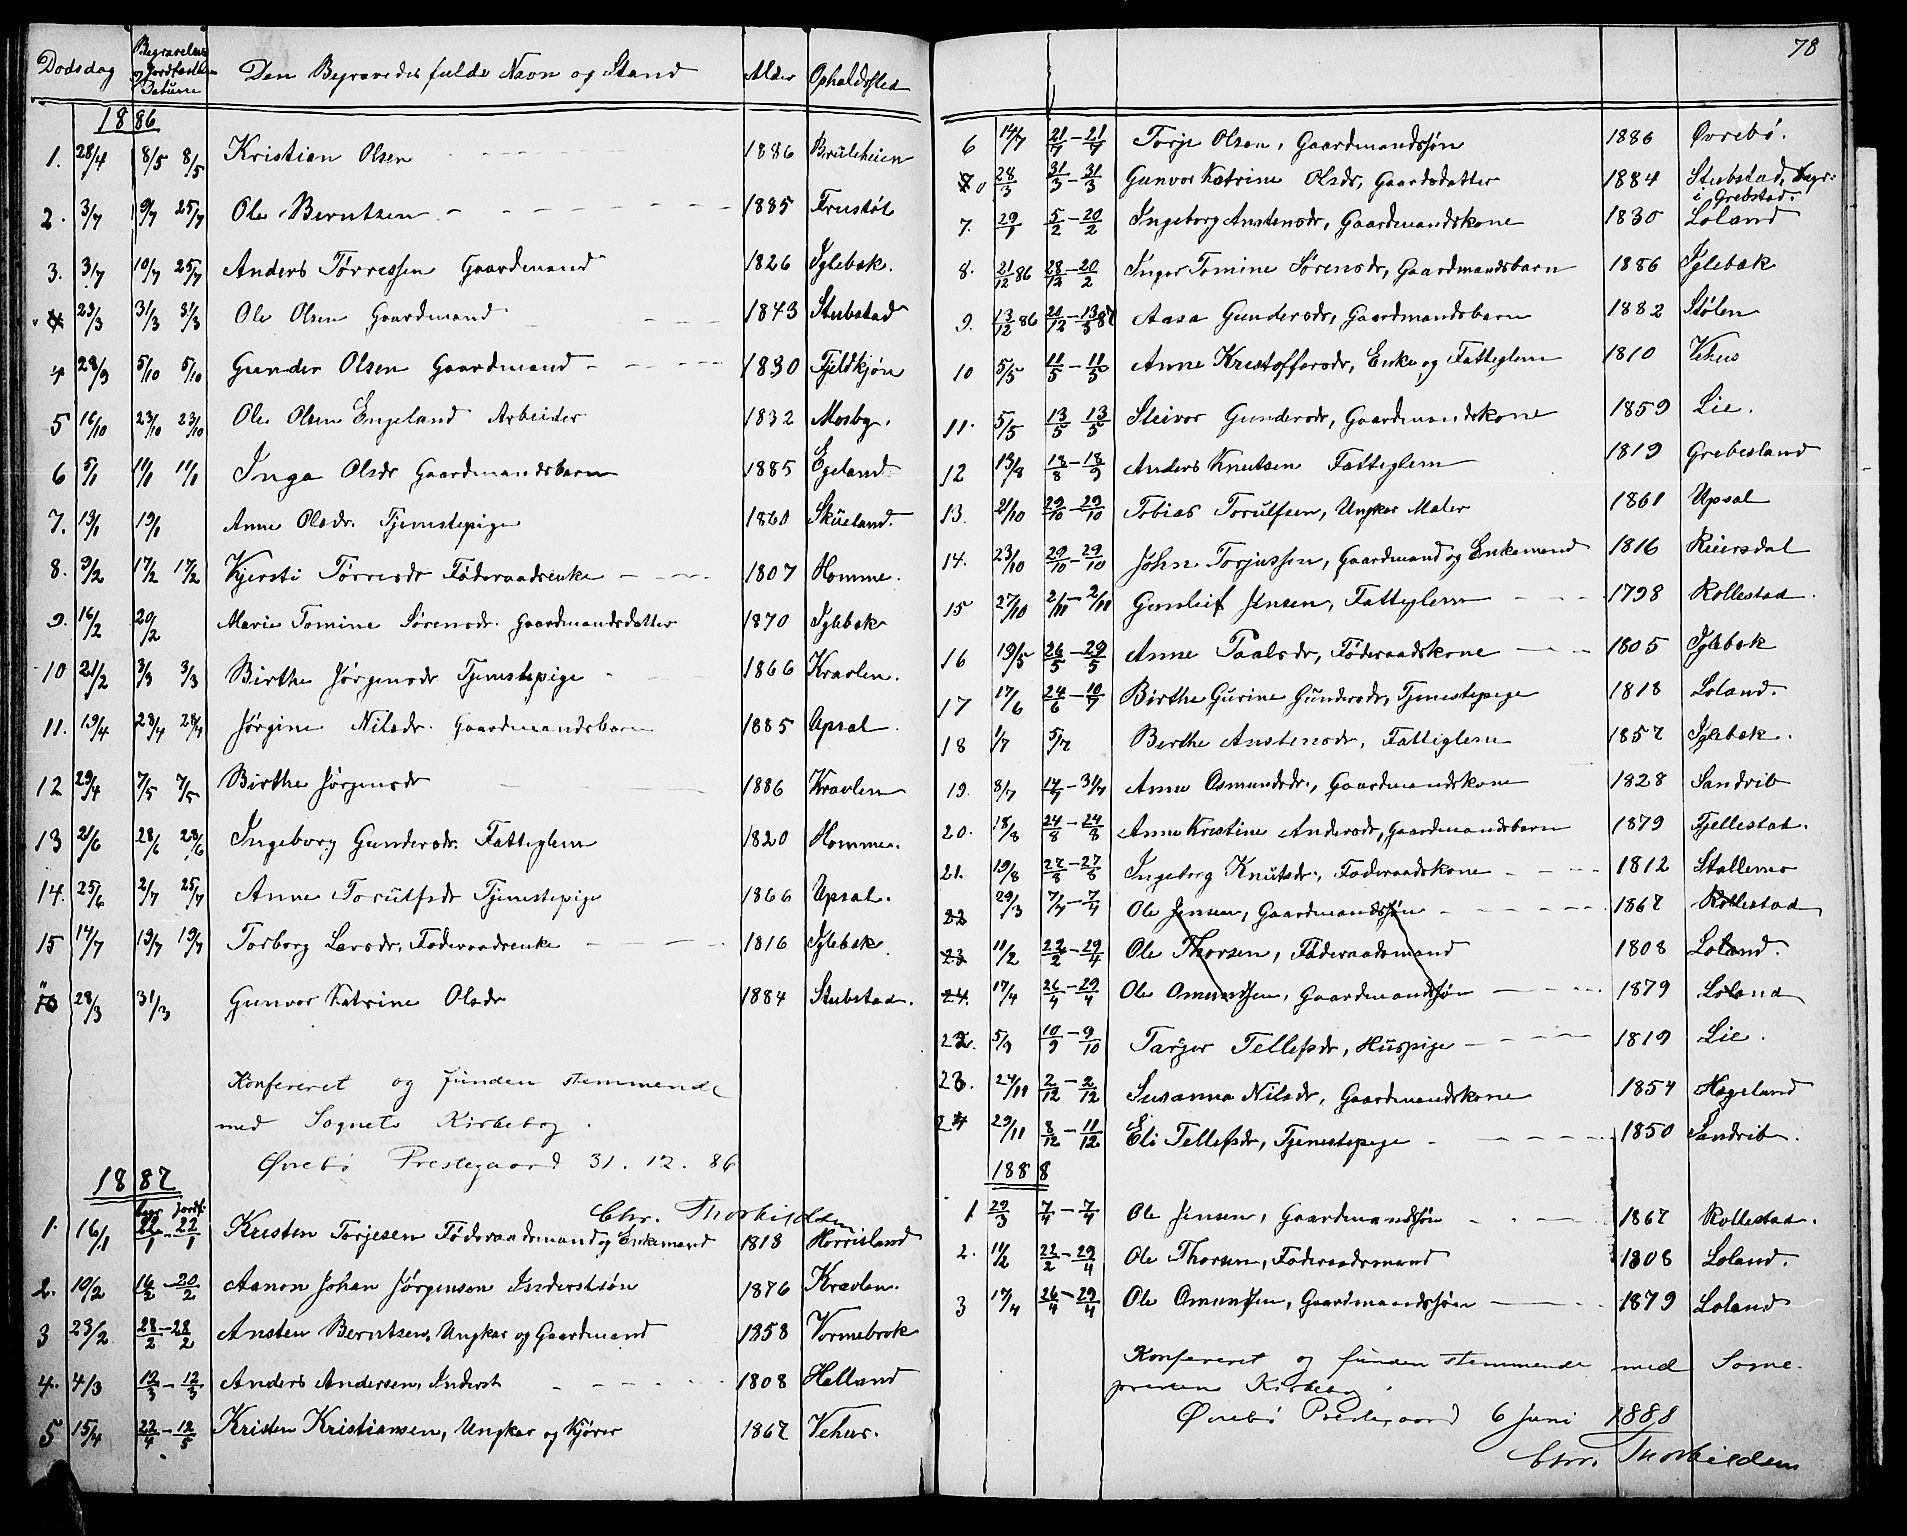 Dødsdag Begravelses og Jordfæstelses Datum Den Begravedes fulde Navn og Stand Alder Opholdssted
1886
1. 28/4 8/5 8/5 Kristian Olsen 1886 Bruleheien
2. 3/7 9/7 25/7 Ole Berntsen 1885 Frustøl
3. 3/7 10/7 25/7 Anders Tørressen Gaardmand 1826 Iglebæk.
23/3 31/3 31/3 Ole Olsen Gaardmand 1843 Stubstad
4 28/9 5/10 5/10 Gunder Olsen Gaardmand 1830 Fjeldkjøn
5 16/10 23/10 23/10 Ole Olsen Engeland Arbeider 1832 Mosby.
6 5/1 11/1 11/1 Inga Olsdr Gaardmandsbarn 1885 Egeland
7. 13/1 19/1 Anne Olsdr. Tjenestepige 1860 Skueland.
8. 9/2 17/2 17/2 Kjersti Tørresdr Føderaadsenke 1807 Homme.
9. 16/2 20/2 Marie Tomine Sørensdr. Gaardmandsdatter 1870 Iglebæk
10 21/2 3/3 3/3 Birthe Jørgensdr Tjenestepige 1866 Kravlen.
11. 19/4 28/4 28/4 Jørgine Nilsdr. Gaardmandsbarn 1885 Upsal.
12 29/4 7/5 7/5 Birthe Jørgensdr 1886 Kravlen
13 21/6 28/6 28/6 Ingeborg Gundersdr. Fattiglem 1820 Homme.
14. 25/6 2/7 25/7 Anne Torulfsdr Tjenestepige 1866 Upsal.
15 14/7 19/7 19/7 Torborg Larsdr, Føderaadsenke 1816 Iglebæk.
28/3 31/3 Gunvor Katrine Olsdr 1884 Stubstad.
Konfereret og funden stemmende
med Sognets Kirkebog.
Øvrebø Prestegaard 31.12.86
Chr. Thorkildsen
1887
begr. jordf.
1. 16/1 22/1 - 22/1 Kristen Torjesen Føderaadsmand og Enkemand 1818 Horrisland
2. 10/2 16/2 - 20/2 Aanon Johan Jørgensen Inderstsøn 1876 Kravlen.
3 23/2 28/2 - 28/2 Ansten Berntsen, Ungkar og Gaardmand 1858 Vormebrok
4. 4/3 12/3 - 12/3 Anders Andersen, Inderst 1808 Helland
5 15/4 22/4 - 12/5 Kristen Kristiansen, Ungkar og Kjører 1867 Vehus.
78
6 14/7 21/7 - 21/7 Torje Olsen, Gaardmandssøn 1886 Øvrebø.
28/3 31/3 - 31/3 Gunvor Katrine Olsdr, Gaardsdatter 1884 Stubstad, begr. i Grebstad.
7. 29/1 5/2 - 20/2 Ingeborg Anstensdr, Gaardmandskone 1830 Loland
8. 21/12 86 28/12 - 20/2 Inger Tomine Sørensdr, Gaardmandsbarn 1886 Iglebæk
9. 13/12 86 21/12 - 13/3 87 Aasa Gundersdr, Gaardmandsbarn 1882 Stølen
10 5/5 11/5 - 11/5 Anne Kristoffersdr, Enke og Fattiglem 1810 Vehus
11. 5/5 13/5 13/5 Steivor Gundersdr, Gaardmandskone 1859 Lie.
12 13/8 18/8 - 18/9 Anders Knutsen Fattiglem 1819 Grebesland
13. 21/10 29/10 - 29/10 Tobias Torulfsen, Ungkar Maler 1861 Upsal
14. 23/10 29/10 - 29/10 John Torjussen, Gaardmand og Enkemand 1816 Reiersdal
15 27/10 2/11 - 2/11 Gunleif Jensen, Fattiglem 1798 Rollestad.
16 19/5 26/5 - 29/5 Anne Paalsdr, Føderaadskone 1805 Iglebæk
17 17/6 24/6 - 10/7 Birthe Gurine Gundersdr, Tjenestepige 1818 Loland.
18 1/7 5/7 Berthe Anstensdr, Fattiglem 1857 Iglebæk.
19. 8/7 17/7 - 31/7 Anne Osmundsdr., Gaardmandskone 1828 Sandrib
20. 18/8 24/8 - 24/8 Anne Kristine Andersdr, Gaardmandsbarn 1879 Fjellestad.
21. 19/8 27/8 - 27/8 Ingeborg Knutsdr., Føderaadskone 1812 Stallemo
22 29/3 7/4 - 7/4 Ole Jensen, Gaardmandssøn 1867 Rollestad
23 11/2 22/2 - 29/4 Ole Thorsen, Føderaadsmand 1808 Loland.
24. 17/4 26/4 - 29/4 Ole Omundsen, Gaardmandssøn 1879 Loland
22. 5/9 10/9 - 9/10 Tarjer Tellefsdr, Huspige 1819 Lie.
23. 24/11 2/12 - 2/12 Susanna Nilsdr, Gaardmandskone 1854 Hageland
24 29/11 8/12 - 11/12 Eli Tellefsdr, Tjenestepige 1850 Sandrib.
1888
1 29/3 7/4 - 7/4 Ole Jensen, Gaardmandssøn 1867 Rollestad.
2. 11/2 22/2 - 29/4 Ole Thorsen, Føderaadsmand 1808 Loland.
3 17/4 26/4 - 29/4 Ole Omundsen, Gaardmandssøn 1879 Loland
Konfereret og funden stemmende med Sogne-
prestens Kirkebog.
Øvrebø Prestegaard 6 Juni 1888
Chr. Thorkildsen